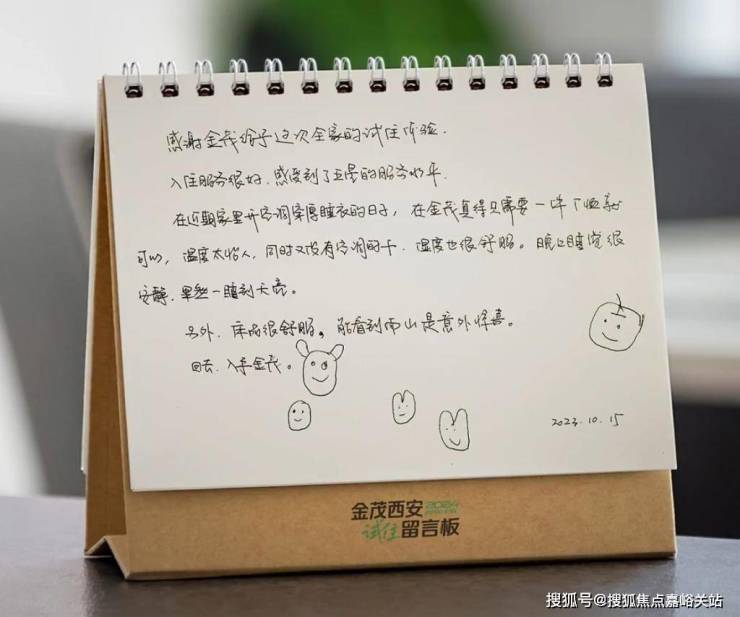 感谢金茂给予这次全家的试住体验.
入住服务很好.感受到了五星的服务水平.
在近期家里开空调穿厚睡衣的日子, 在金茂真得只需要一件
可以, 温度太怡人, 同时又没有空调的干. 湿度也很舒服。晚上睡觉很
安静.果然一睡到天亮。
另外. 床品很舒服。能看到南山是意外惊喜。
回去.入手金茂。
2023.10.15
金茂西安2024
试住留言板
搜狐号@搜狐焦点嘉峪关站